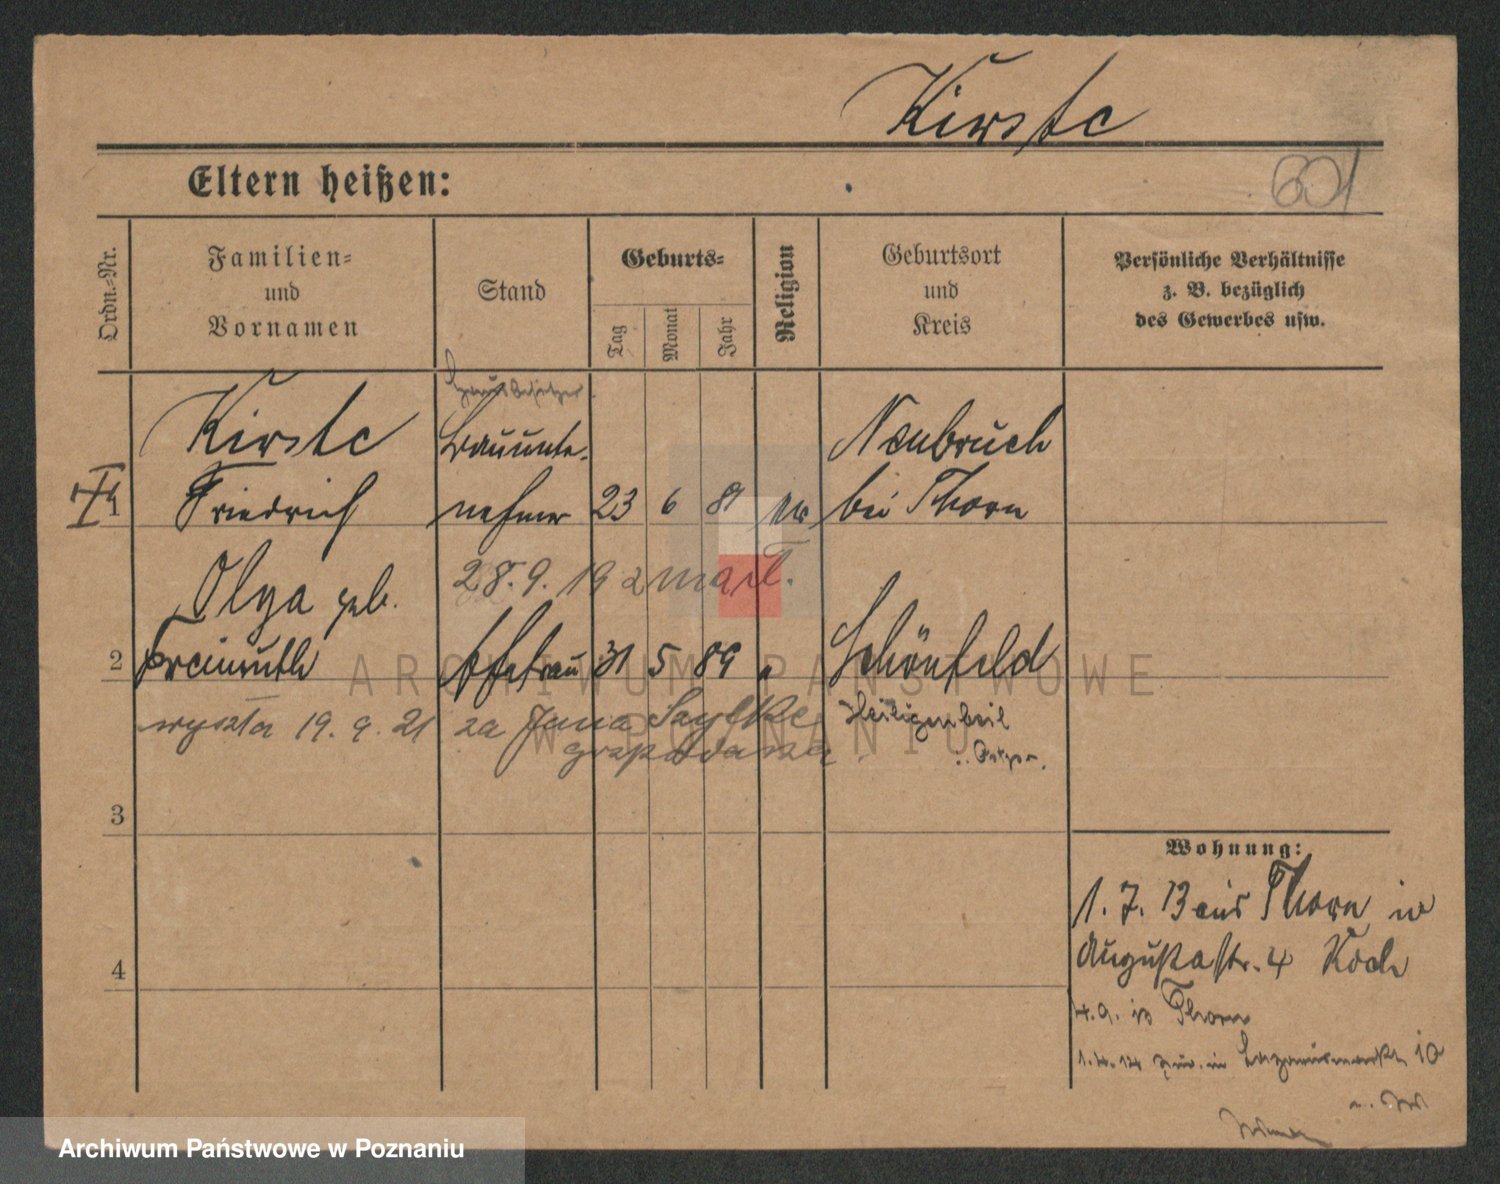 Kirste
601
Eltern heißen:
Ordn.-Nr.
Familien-
und
Vornamen
Stand
Geburts-
Tag
Monat
Jahr
Religion
Geburtsort
und
Kreis
Persönliche Verhältnisse
z. B. bezüglich
des Gewerbes usw.
Hausbesitzer
Kirste
Bauunte-
Neubruch
1
Friedrich
nehmer
23
6
81
ev
bei Thorn
28. 9. 19
Olga geb.
2
Freimuth
Ehefrau
31
5
89
"
Schönfeld
wyszła 19. 9. 21 za Jana
gospodarza
Heiligenbeil
3
4
Wohnung:
1. 7. 13 aus Thorn in
Augustastr. 4 Koch
4. 9. in Thorn
1. 4. 14 zur. in 10
ARCHIWUM PAŃSTWOWE
W POZNANIU
Archiwum Państwowe w Poznaniu